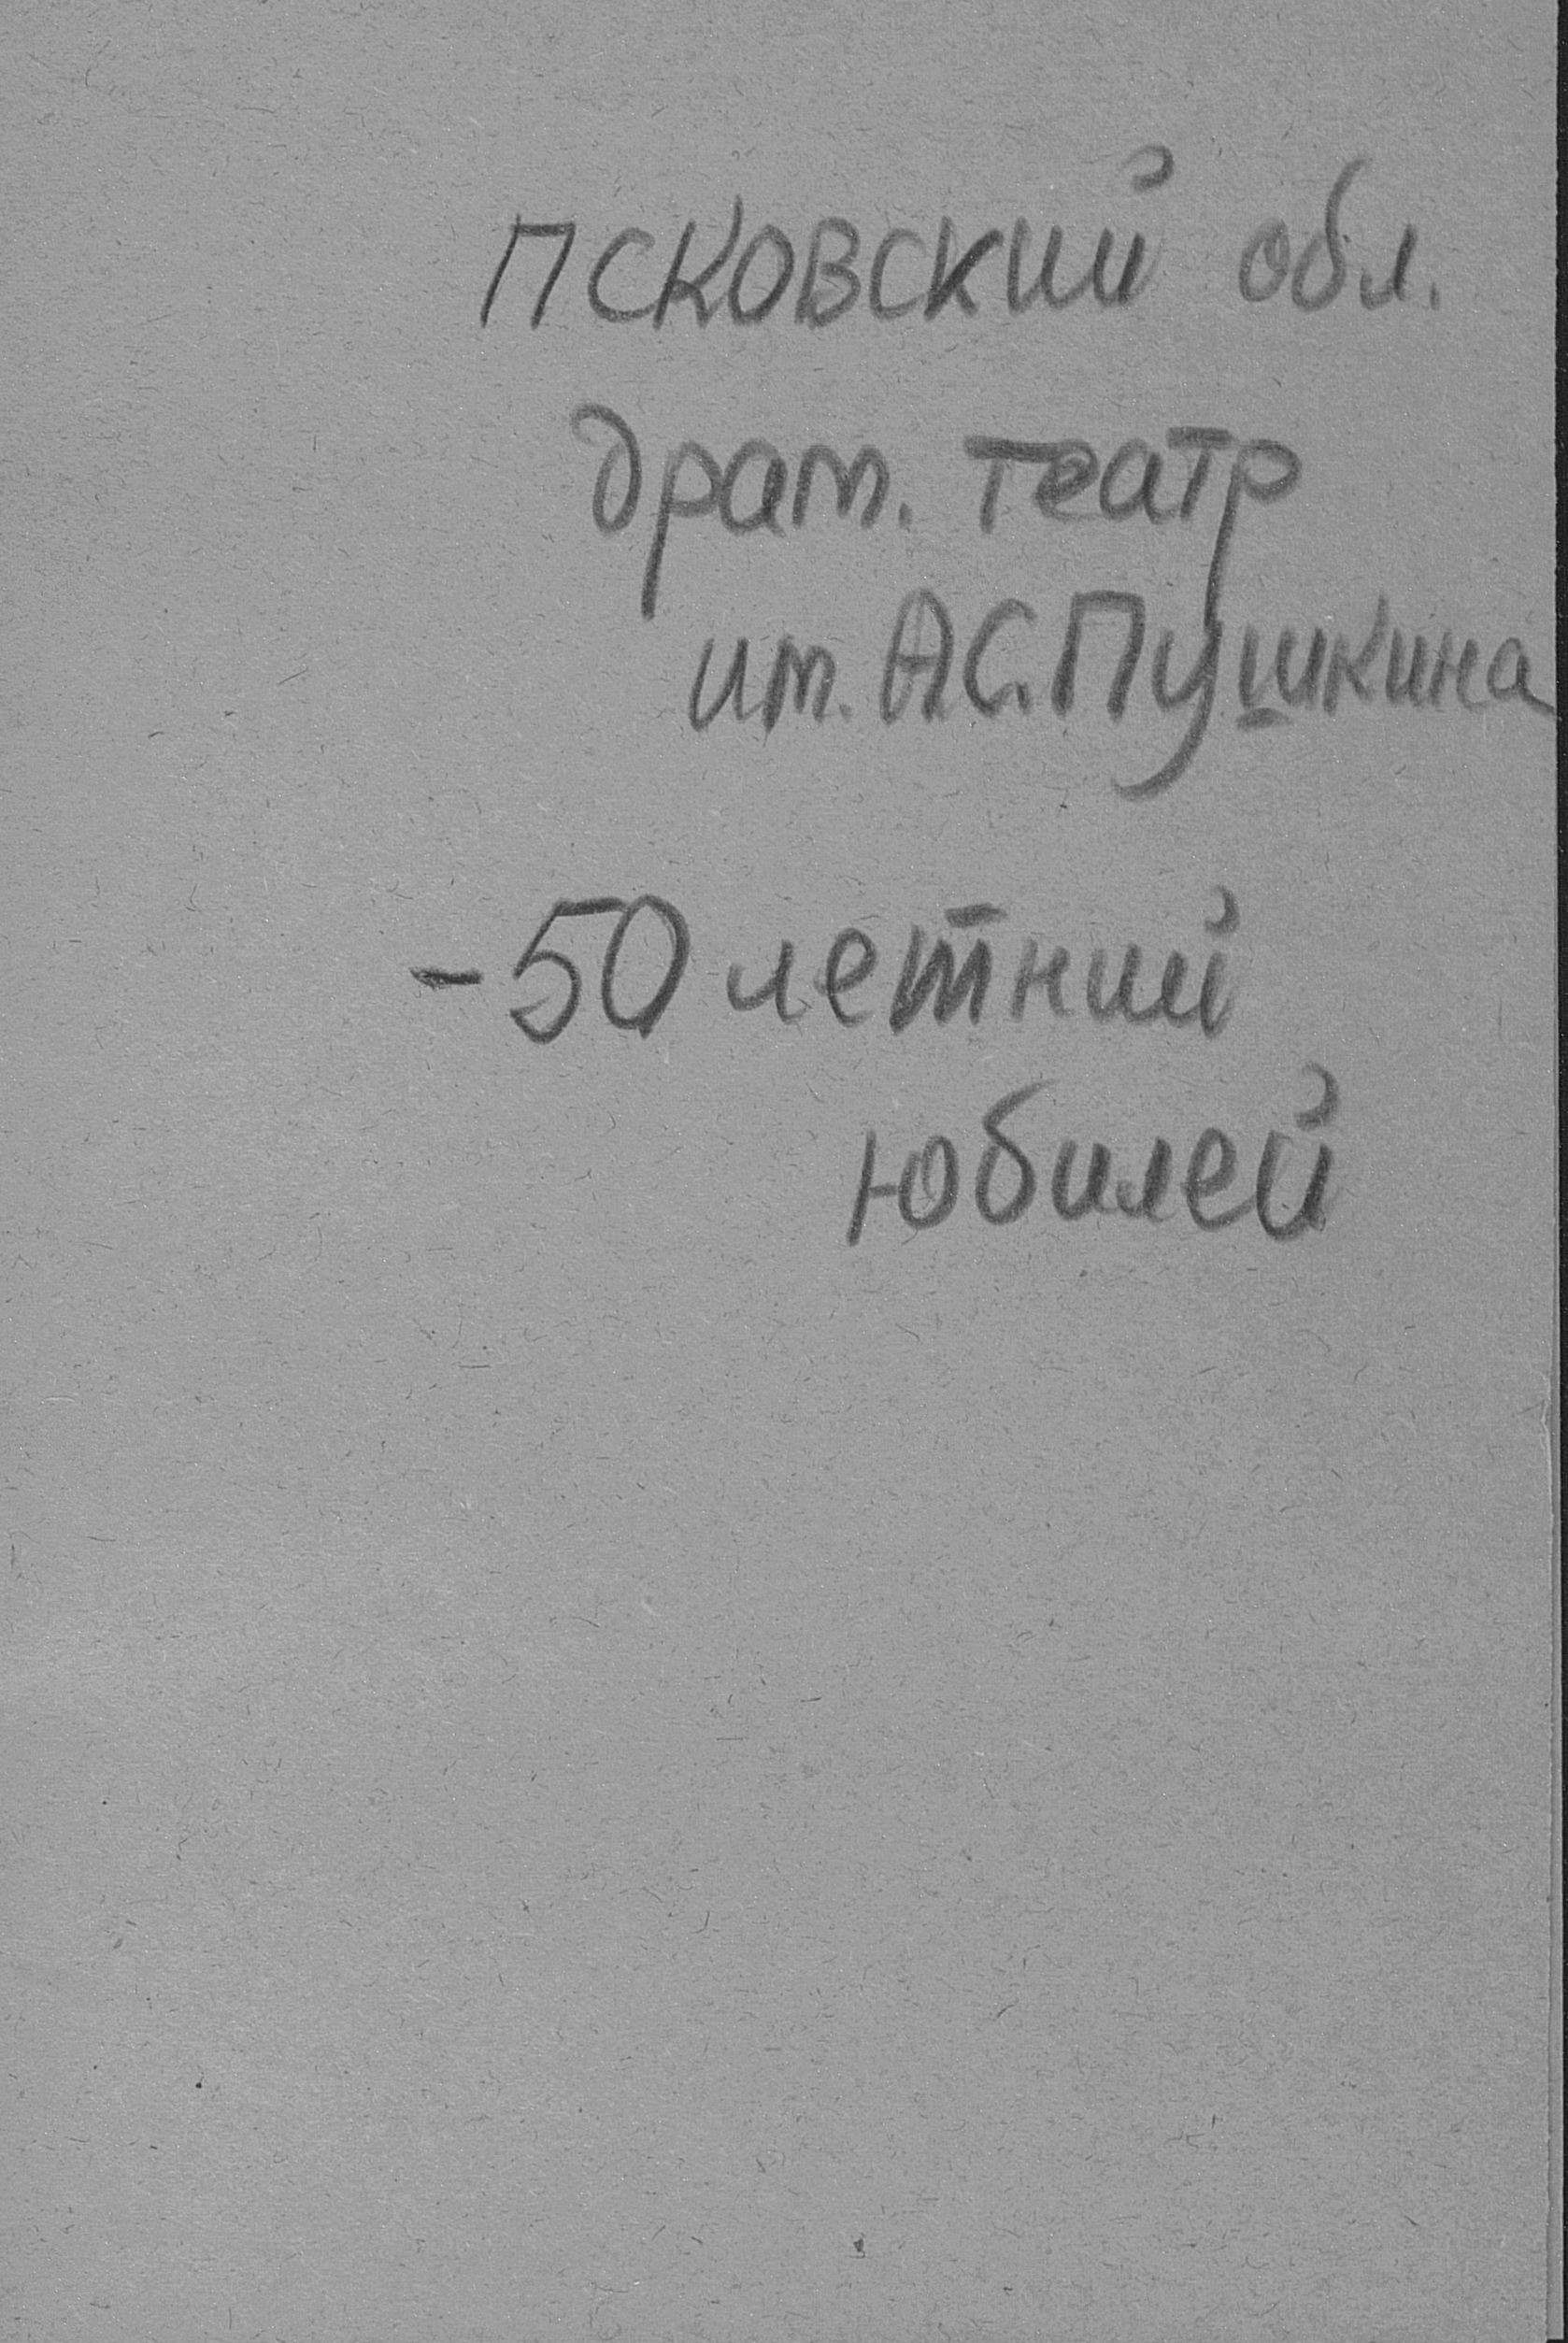 Псковский обл.
драм. театр
им. А.С. Пушкина
- 50 летний
юбилей